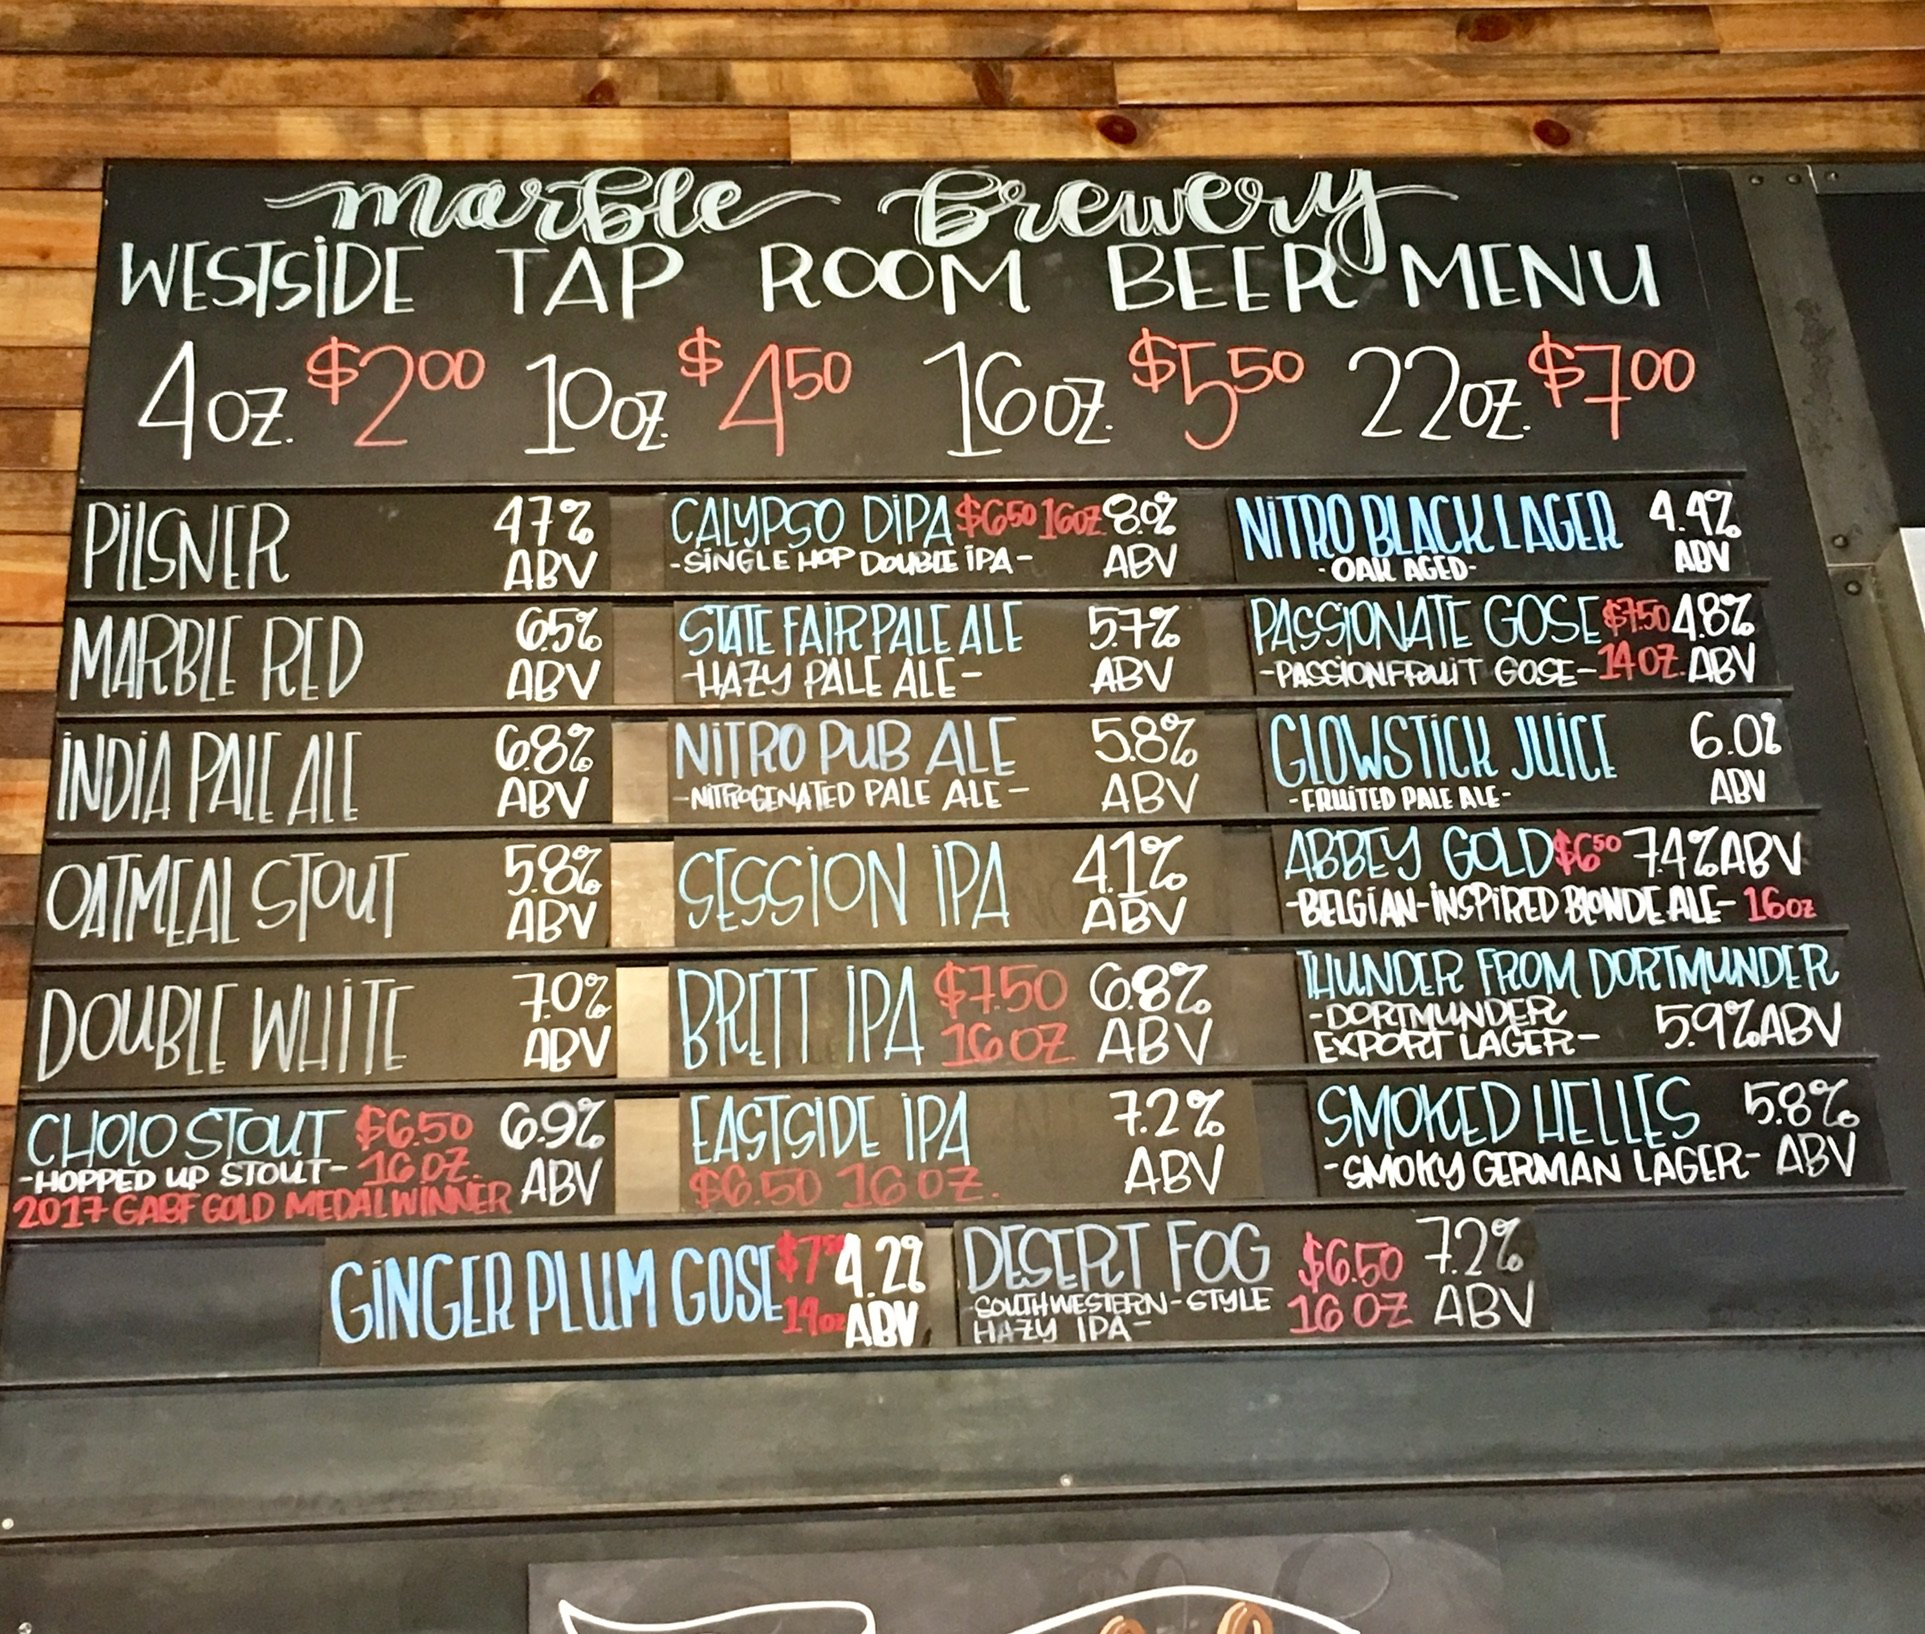 marble brewery
WESTSIDE TAP ROOM BEER MENU
4oz. $2.00 10oz. $4.50 16oz. $5.50 22oz. $7.00
PILSNER 4.7%
ABV
MARBLE RED 6.5%
ABV
INDIA PALE ALE 6.8%
ABV
OATMEAL STOUT 5.8%
ABV
DOUBLE WHITE 7.0%
ABV
CHOLO STOUT $6.50 6.9%
-HOPPED UP STOUT- 16 OZ. ABV
2017 GABF GOLD MEDAL WINNER
CALYPSO DIPA $6.50 16oz 8.0%
-SINGLE HOP DOUBLE IPA- ABV
STATE FAIR PALE ALE 5.7%
-HAZY PALE ALE- ABV
NITRO PUB ALE 5.8%
-NITROGENATED PALE ALE- ABV
SESSION IPA 4.1%
ABV
BRETT IPA $7.50 6.8%
16 OZ ABV
EASTSIDE IPA 7.2%
$6.50 16 OZ. ABV
NITRO BLACK LAGER 4.4%
-OAK AGED- ABV
PASSIONATE GOSE $7.50 4.8%
-PASSIONFRUIT GOSE- 14 OZ. ABV
GLOWSTICK JUICE 6.0%
-FRUITED PALE ALE- ABV
ABBEY GOLD $6.50 7.4% ABV
-BELGIAN-INSPIRED BLONDE ALE- 16oz
THUNDER FROM DORTMUNDER
-DORTMUNDER
EXPORT LAGER- 5.9% ABV
SMOKED HELLES 5.8%
-SMOKY GERMAN LAGER- ABV
GINGER PLUM GOSE $7.50 4.2%
14oz ABV
DESERT FOG $6.50 7.2%
-SOUTHWESTERN-STYLE 16 OZ ABV
HAZY IPA-